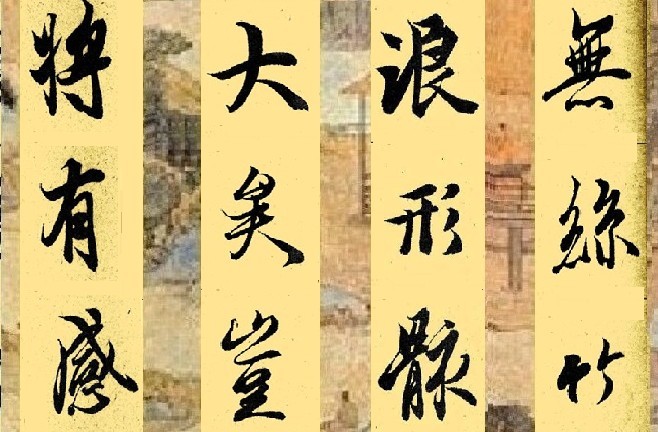 無絲竹
浪形骸
大矣豈
將有感